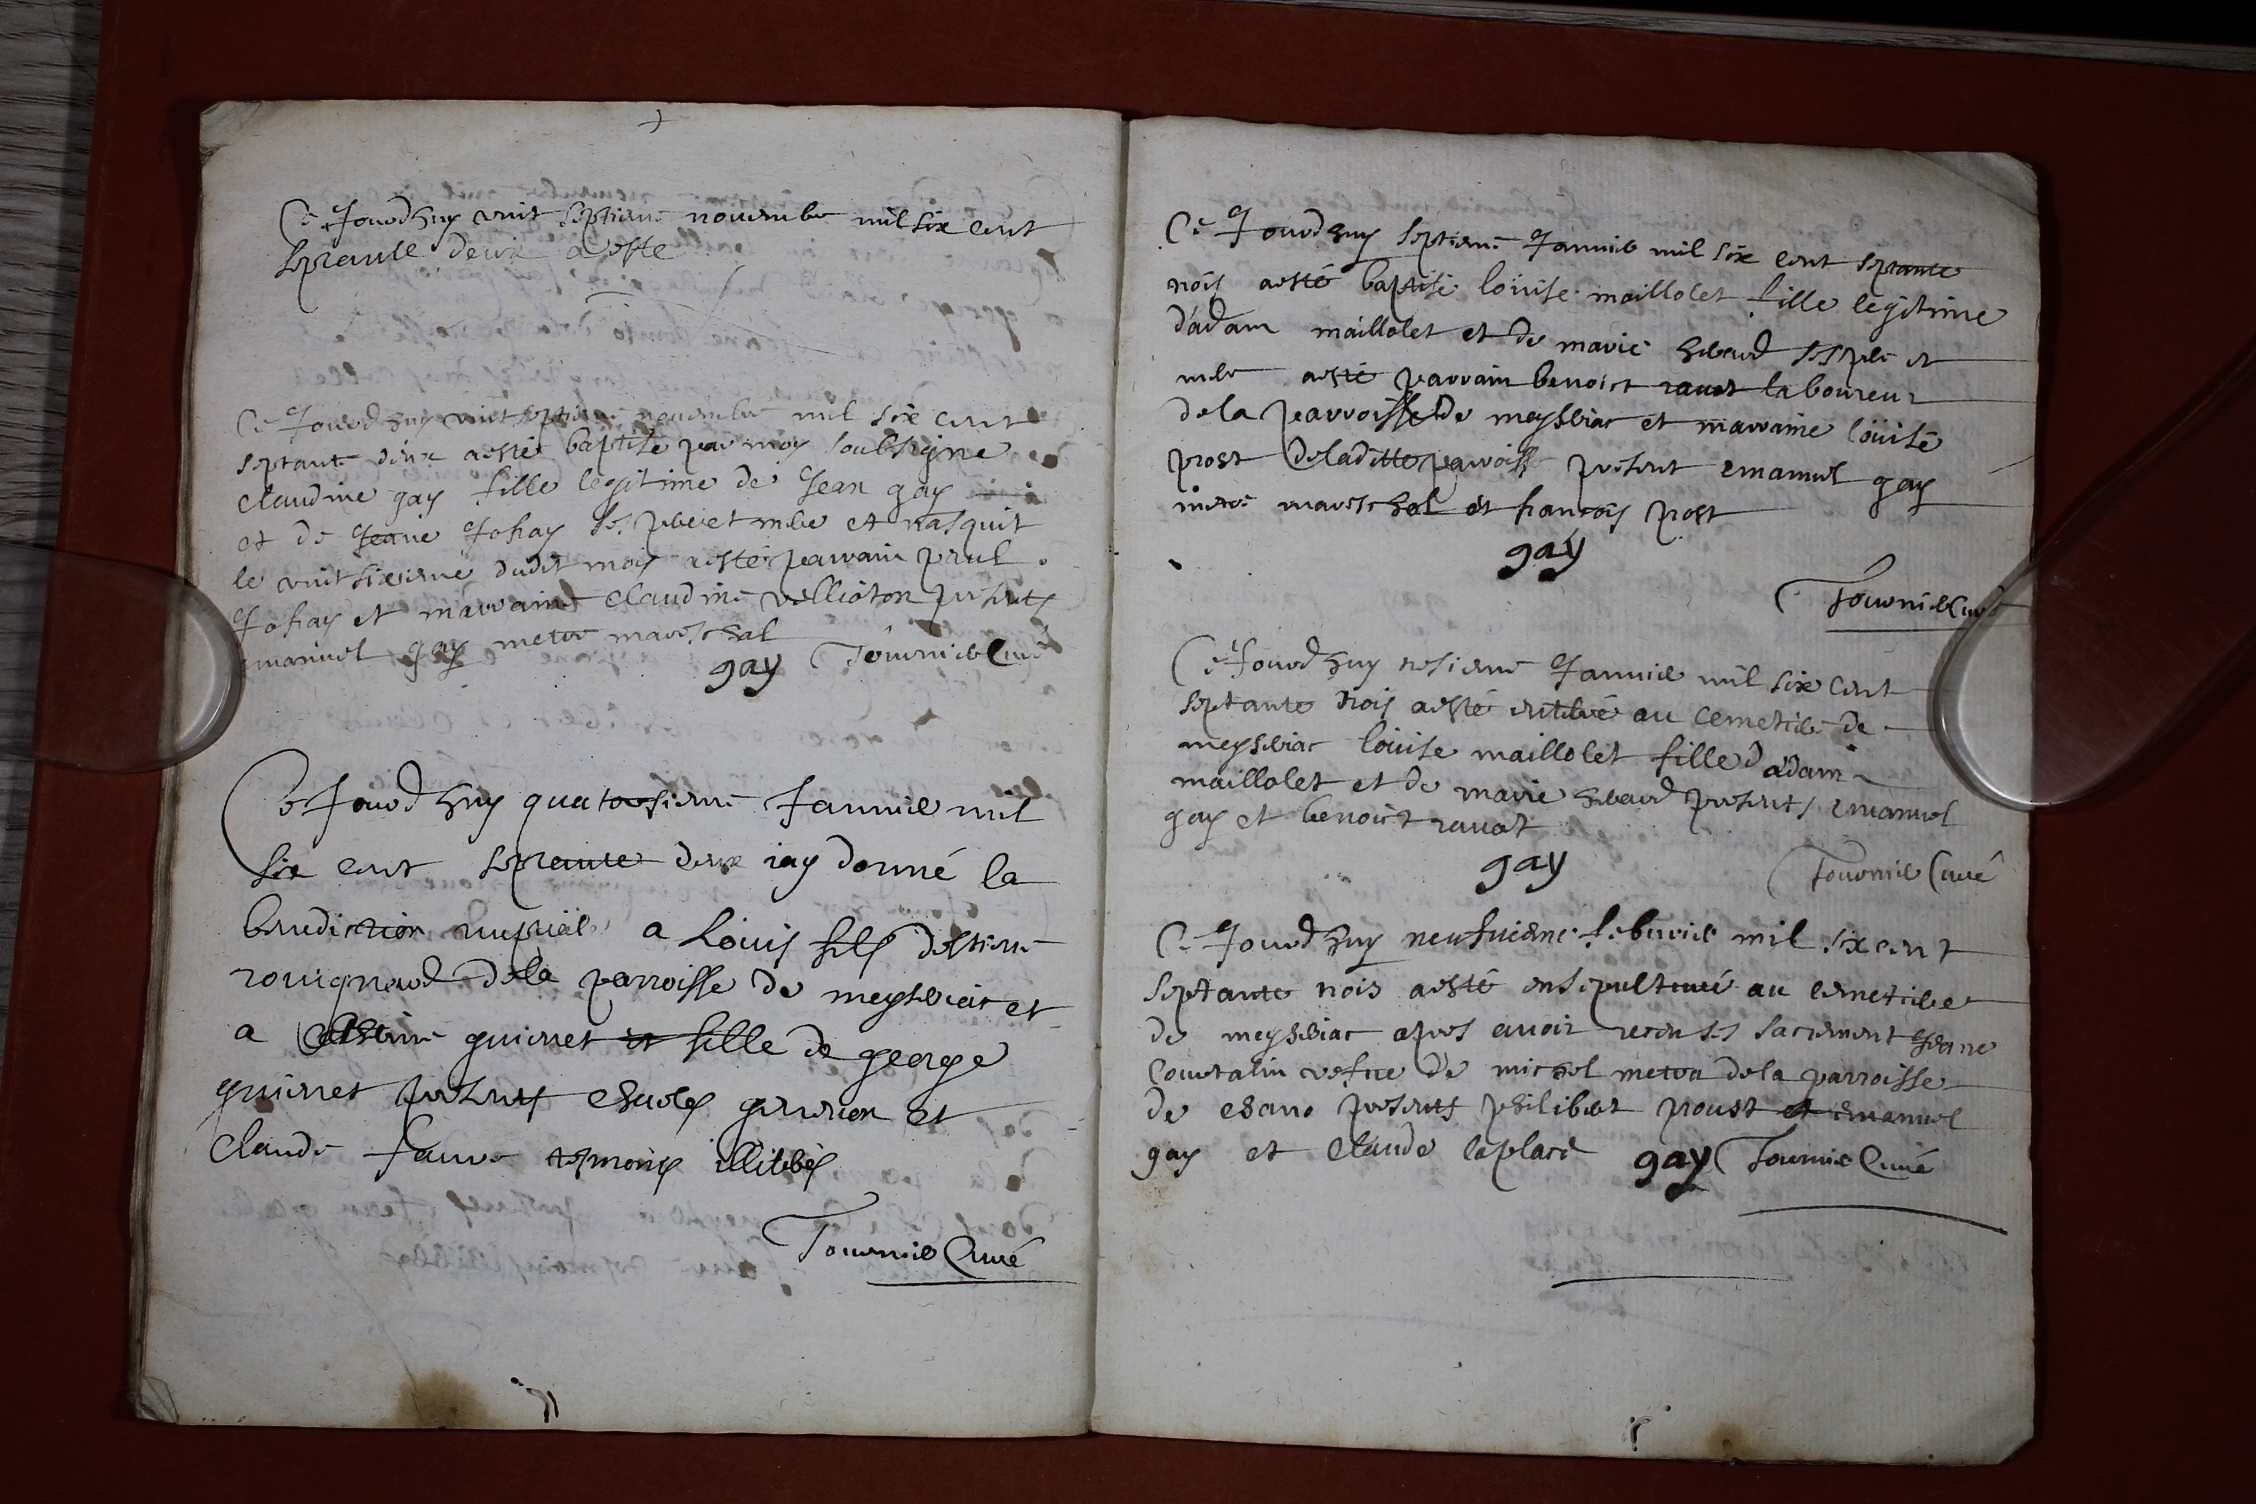 Ce Jourdhuy vint septieme novembre mil six cent
septante deux a este
Ce Jourdhuy vint septieme novembre mil six cent
septante deux a esté baptisé par moy soubsigne
claudine gay fille legitime de Jean gay
et de Jeane Jofray ses pere et mere et nasquit
le vint sixieme dudit mois a esté parrain paul
Jofray et marraine claudine presents
emanuel gay metre mareschal
gay Tournier Curé
Ce Jourdhuy quatorsieme Janvier mil
six cent septante deux iay donné la
benediction nuptiale a Louis fils destiene
rouignard de la parroisse de meyseriat et
a guionet et fille de george
guionet presents charles et
claude faure tesmoins illiteres
Tournier Curé
Ce Jourdhuy septieme Janvier mil six cent septante
trois a esté baptisé louise maillolet fille legitime
dadam maillolet et de marie ses pere et
mere a esté parrain benoict ravat laboureur
de la parroisse de meyseriac et marraine louise
prost de laditte parroisse present emanuel gay
metre mareschal et francois prost
gay
Tournier Curé
Ce Jourdhuy Janvier mil six cent
septante trois a esté enterré au cemetiere de
meyseriac louise maillolet fille dadam
maillolet et de marie presents emanuel
gay et benoict ravat
gay
Tournier Curé
Ce Jourdhuy neufvieme febvrier mil six cent
septante trois a esté ensepulturé au cemetiere
de meyseriac apres avoir receu ses sacrement Jeane
Courtalin vefve de michel de la parroisse
de presents philibert proust et emanuel
gay et claude laplace gay Tournier Curé